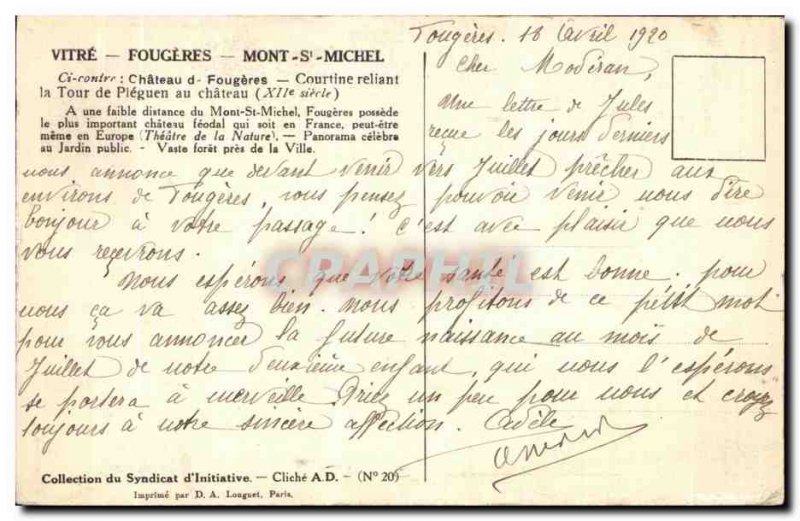 Fougères. 18 Avril 1920
VITRÉ — FOUGÈRES — MONT-St-MICHEL
Ci-contre : Château d- Fougères — Courtine reliant
la Tour de Pléguen au château (XIIe siècle)
A une faible distance du Mont-St-Michel, Fougères possède
le plus important château féodal qui soit en France, peut-être
même en Europe (Théâtre de la Nature). — Panorama célèbre
au Jardin public. - Vaste forêt près de la Ville.
Cher Modéran,
Une lettre de Jules
reçue les jours derniers
nous annonce que devant venir vers Juillet prêcher aux
environs de Fougères, vous pensez pouvoir venir nous dire
bonjour à votre passage! C'est avec plaisir que nous
vous recevrons.
Nous espérons que votre santé est bonne. pour
nous ça va assez bien. Nous profitons de ce petit mot
pour vous annoncer la future naissance au mois de
Juillet de notre deuxième enfant, qui nous l'espérons
se portera à merveille. Priez un peu pour nous et croyez
toujours à notre sincère affection. Adèle
Collection du Syndicat d'Initiative. — Cliché A.D. - (N° 20)
Imprimé par D. A. Longuet, Paris.
CPAPHIL